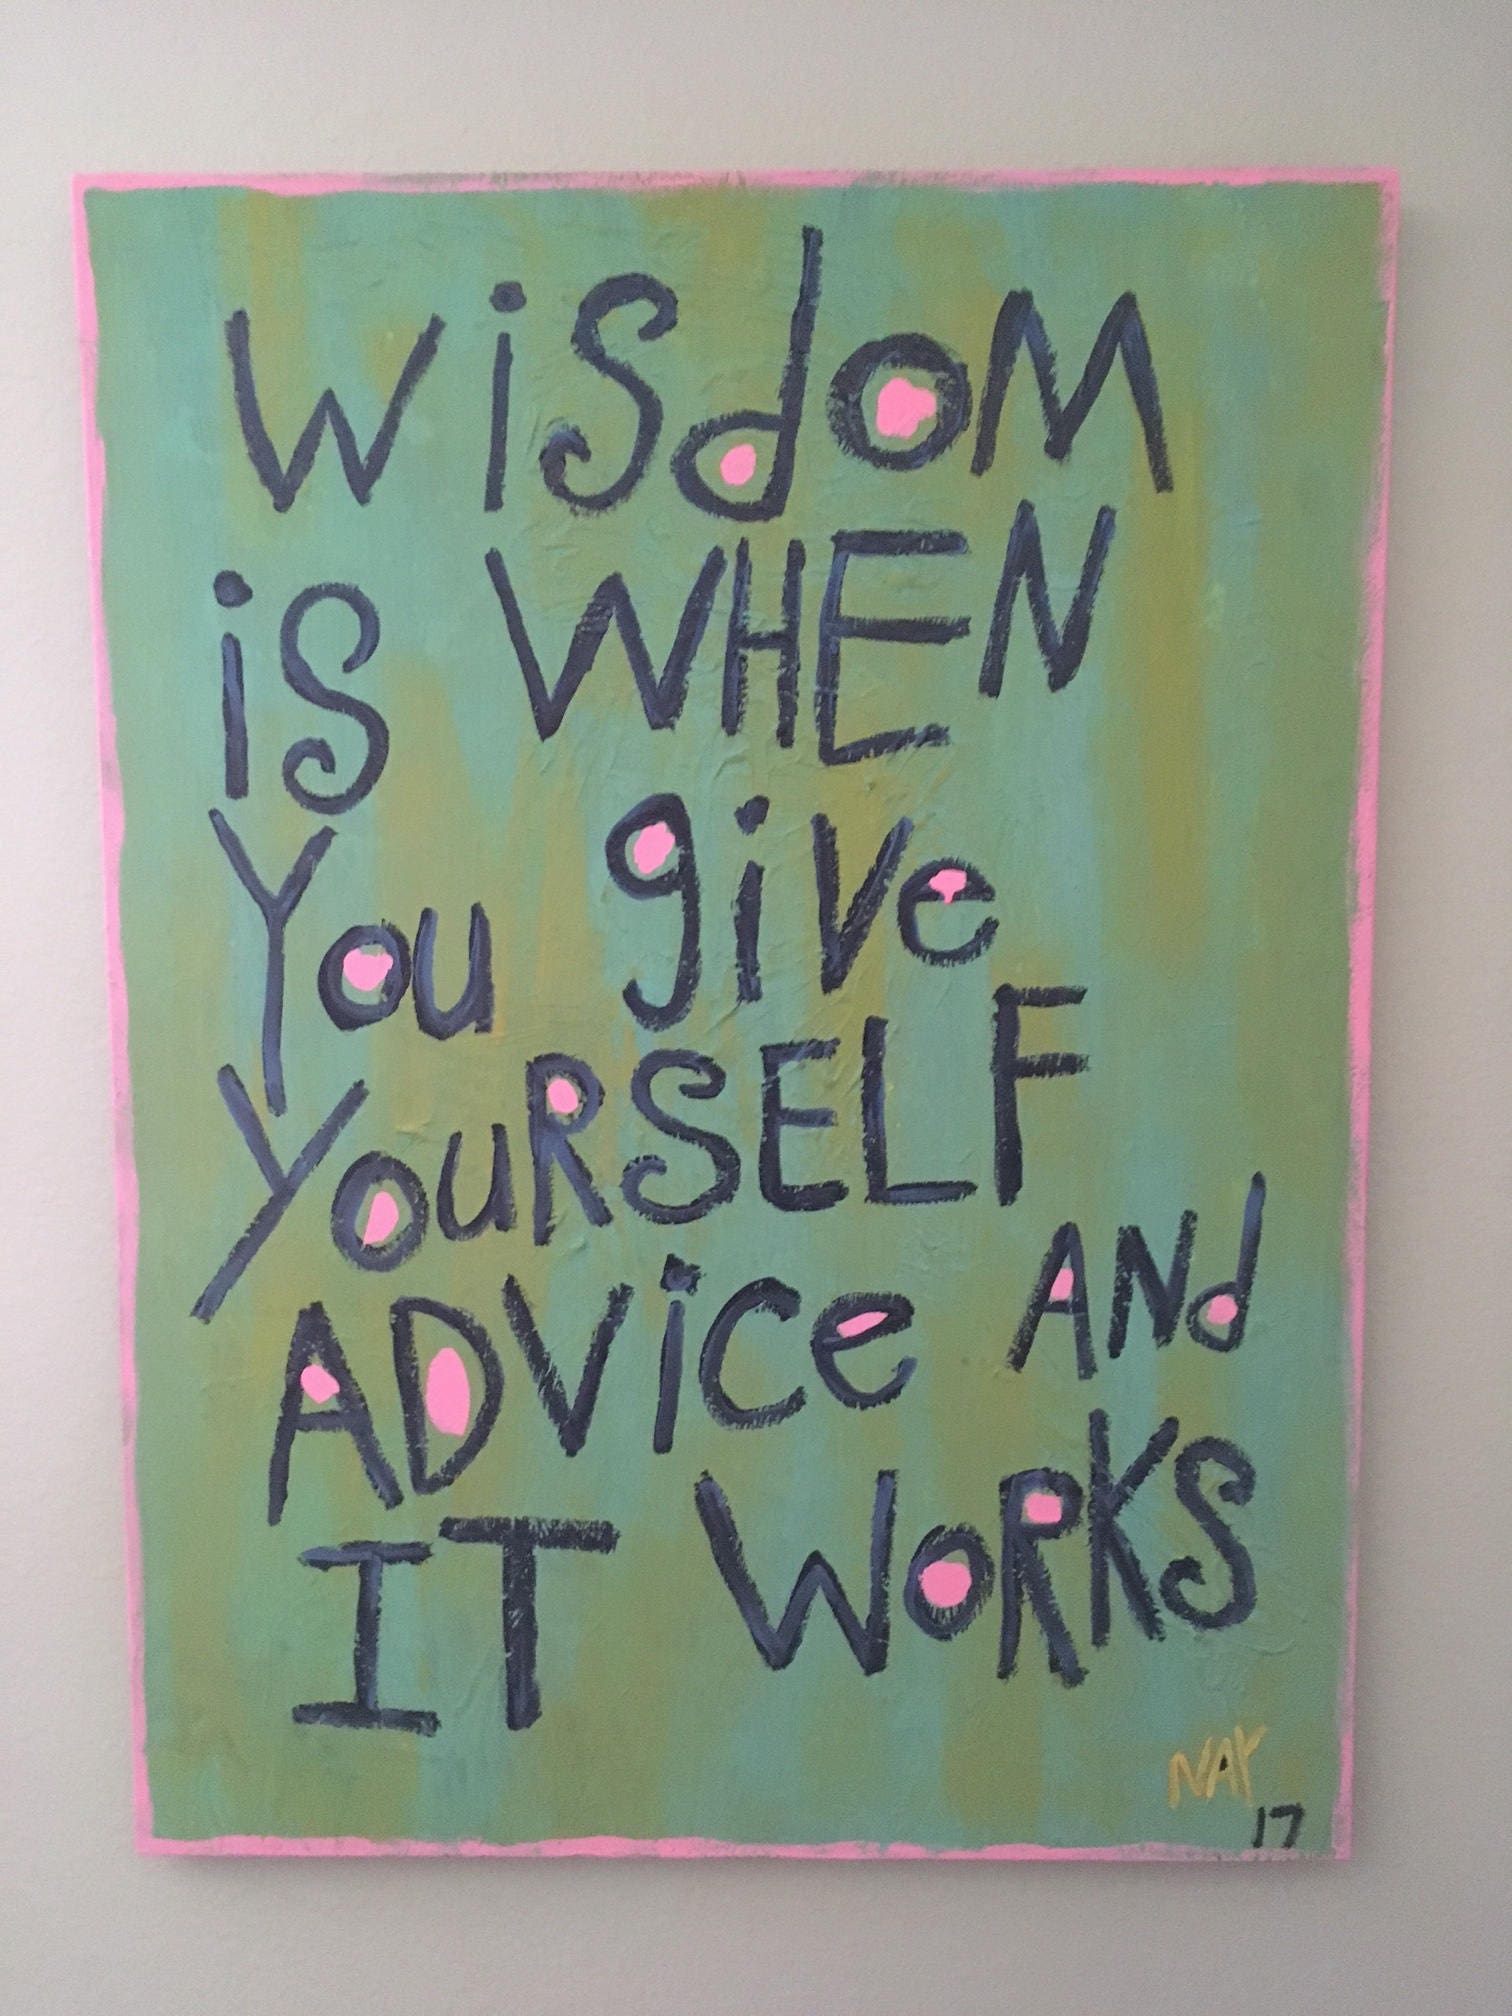 wisdom
is WHEN
You give
YouRSELF
ADVice ANd
IT WoRKS
NAY
17